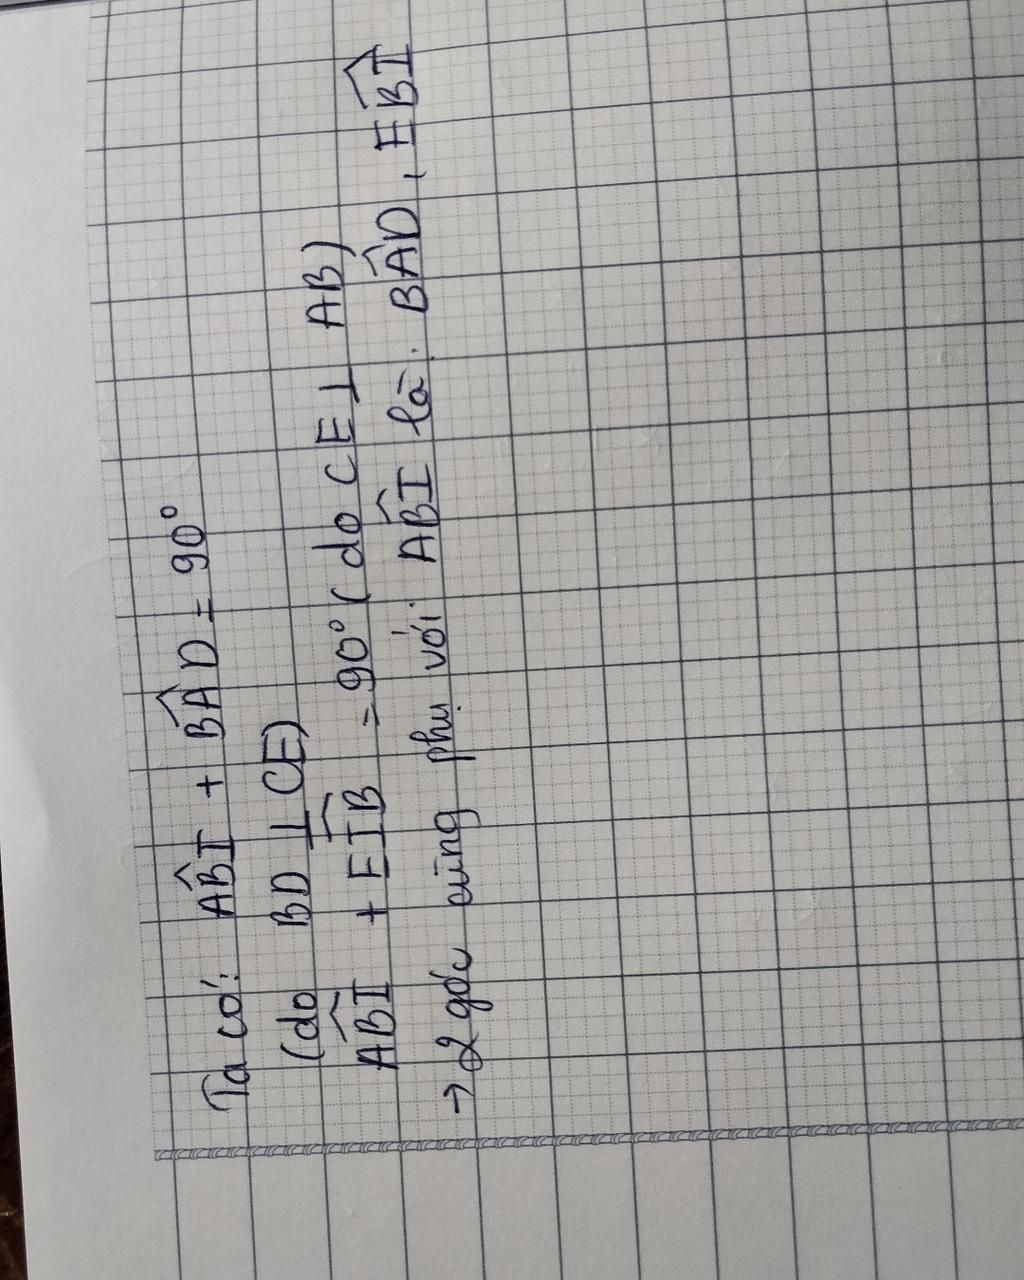 Ta có: ABI + BAD = 90°
(do BD ⊥ CE)
ABI + EIB = 90° (do CE ⊥ AB)
→ 2 góc cùng phụ với ABI là: BAD, EBI